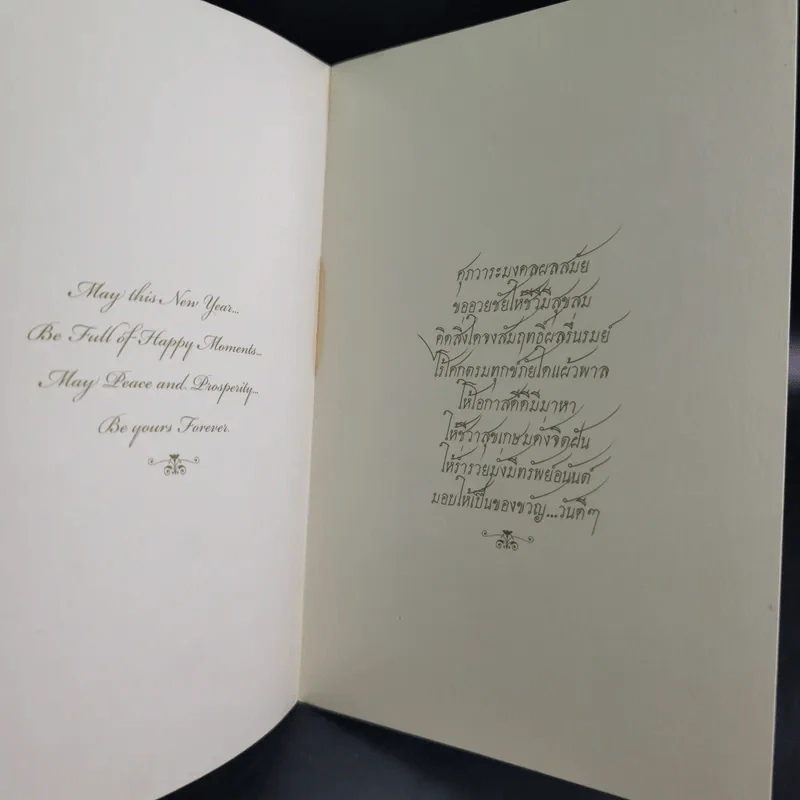 May this New Year...
Be Full of Happy Moments...
May Peace and Prosperity...
Be yours Forever.
ศุภวาระมงคลผลสมัย
ขออวยชัยให้ชีวีมีสุขสม
คิดสิ่งใดจงสัมฤทธิ์ผลรื่นรมย์
ไร้โศกตรมทุกข์ภัยใดแผ้วพาล
ให้โอกาสดีดีมีมาหา
ให้ชีวาสุขเกษมดั่งจิตฝัน
ให้ร่ำรวยมั่งมีทรัพย์อนันต์
มอบให้เป็นของขวัญ...วันดีๆ